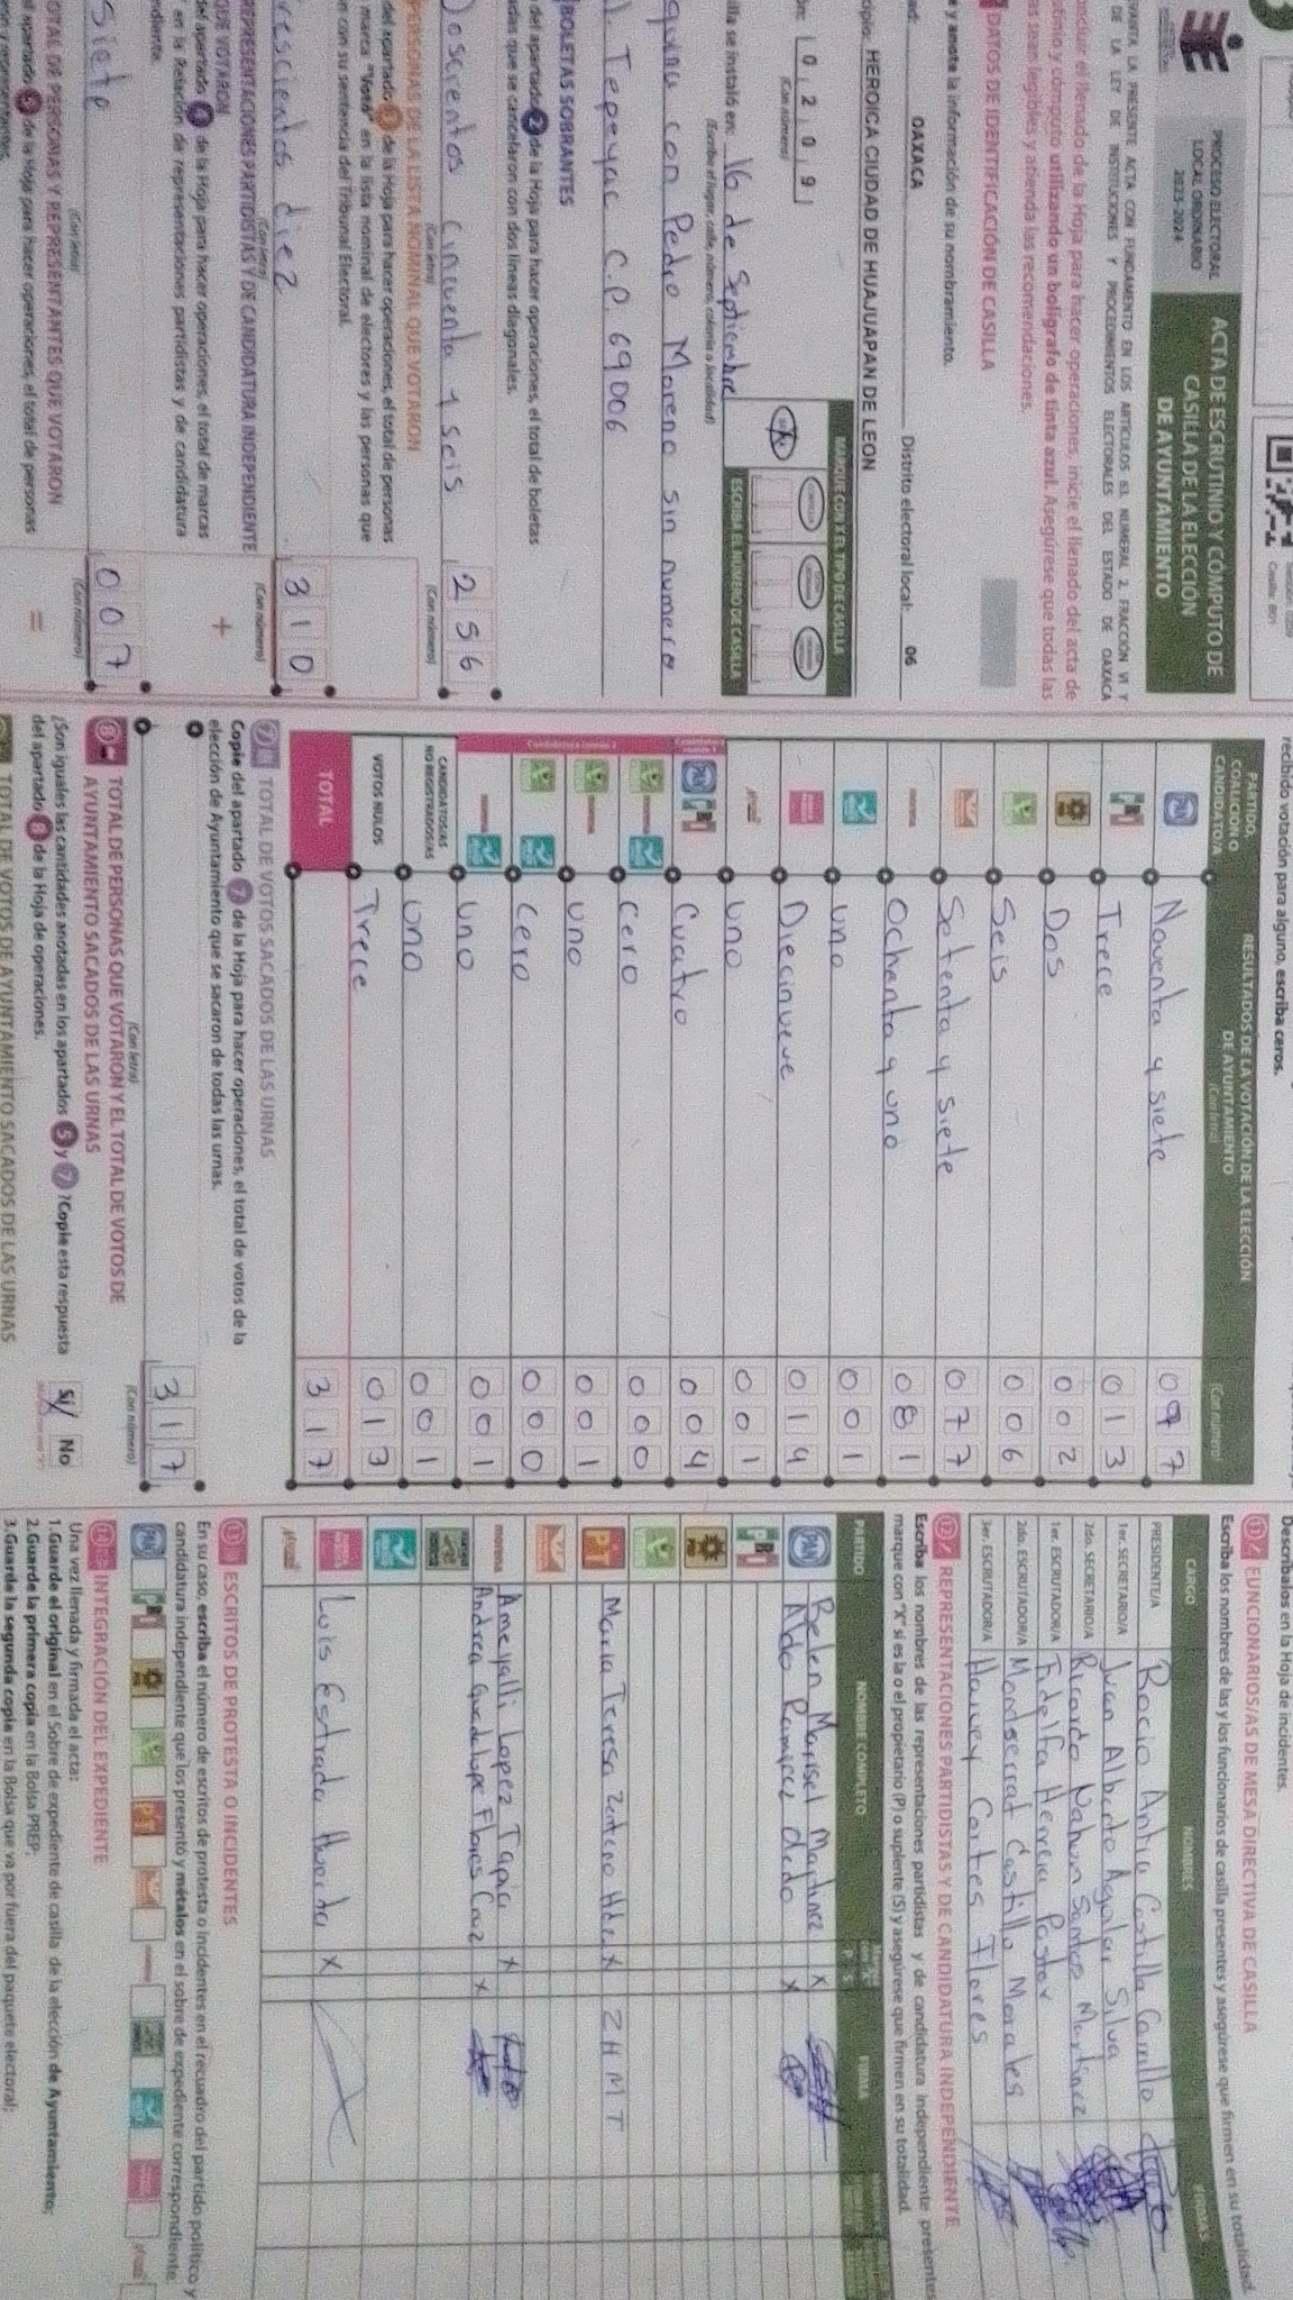 PROCESO ELECTORAL
LOCAL ORDINARIO
2023-2024
ACTA DE ESCRUTINIO Y CÓMPUTO DE
CASILLA DE LA ELECCIÓN
DE AYUNTAMIENTO
VANTA LA PRESENTE ACTA CON FUNDAMENTO EN LOS ARTÍCULOS 63, NUMERAL 2, FRACCIÓN VI Y
DE LA LEY DE INSTITUCIONES Y PROCEDIMIENTOS ELECTORALES DEL ESTADO DE OAXACA
ncluir el llenado de la Hoja para hacer operaciones, inicie el llenado del acta de
utinio y cómputo utilizando un bolígrafo de tinta azul. Asegúrese que todas las
as sean legibles y atienda las recomendaciones.
DATOS DE IDENTIFICACIÓN DE CASILLA
e y anote la información de su nombramiento.
ad: OAXACA Distrito electoral local: 06
cipio: HEROICA CIUDAD DE HUAJUAPAN DE LEON
ón: 0 2 0 9
(Con número)
MARQUE CON X EL TIPO DE CASILLA
ESCRIBA EL NÚMERO DE CASILLA
illa se instaló en: 16 de Septiembre
(Escriba el lugar, calle, número, colonia o localidad)
quina con Pedro Moreno sin numero
l. Tepeyac C.P. 69006
BOLETAS SOBRANTES
del apartado 2 de la Hoja para hacer operaciones, el total de boletas
adas que se cancelaron con dos líneas diagonales.
Doscientos cincuenta y seis 2 5 6
(Con letra) (Con número)
PERSONAS DE LA LISTA NOMINAL QUE VOTARON
del apartado 3 de la Hoja para hacer operaciones, el total de personas
marca "Votó" en la lista nominal de electores y las personas que
n con su sentencia del Tribunal Electoral.
rescientos diez 3 1 0
(Con letra) (Con número)
REPRESENTACIONES PARTIDISTAS Y DE CANDIDATURA INDEPENDIENTE
QUE VOTARON
+
del apartado 4 de la Hoja para hacer operaciones, el total de marcas
en la Relación de representaciones partidistas y de candidatura
ndiente.
siete 0 0 7
(Con letra) (Con número)
OTAL DE PERSONAS Y REPRESENTANTES QUE VOTARON
=
el apartado 5 de la Hoja para hacer operaciones, el total de personas
recibido votación para alguno, escriba ceros.
PARTIDO,
COALICIÓN O
CANDIDATO/A
RESULTADOS DE LA VOTACIÓN DE LA ELECCIÓN
DE AYUNTAMIENTO
(Con letra) (Con número)
PAN Noventa y siete 0 9 7
PRI Trece 0 1 3
Dos 0 0 2
Seis 0 0 6
Setenta y siete 0 7 7
morena Ochenta y uno 0 8 1
uno 0 0 1
Diecinueve 0 1 9
uno 0 0 1
PAN PRI Cuatro 0 0 4
Cero 0 0 0
uno 0 0 1
Cero 0 0 0
uno 0 0 1
CANDIDATOS/AS
NO REGISTRADOS/AS uno 0 0 1
VOTOS NULOS Trece 0 1 3
TOTAL 3 1 7
7 TOTAL DE VOTOS SACADOS DE LAS URNAS
Copie del apartado 7 de la Hoja para hacer operaciones, el total de votos de la
elección de Ayuntamiento que se sacaron de todas las urnas.
3 1 7
(Con letra) (Con número)
8 TOTAL DE PERSONAS QUE VOTARON Y EL TOTAL DE VOTOS DE
AYUNTAMIENTO SACADOS DE LAS URNAS
¿Son iguales las cantidades anotadas en los apartados 5 y 7? Copie esta respuesta
del apartado 8 de la Hoja de operaciones.
Sí No
TOTAL DE VOTOS DE AYUNTAMIENTO SACADOS DE LAS URNAS
Descríbalos en la Hoja de incidentes.
11 FUNCIONARIOS/AS DE MESA DIRECTIVA DE CASILLA
Escriba los nombres de las y los funcionarios de casilla presentes y asegúrese que firmen en su totalidad.
CARGO NOMBRES FIRMAS
PRESIDENTE/A Rocio Antia Castilla Carrillo
1er. SECRETARIO/A Juan Alberto Aguilar Silva
2do. SECRETARIO/A Ricardo Nahum Santos Martinez
1er. ESCRUTADOR/A Fidelfa Herrera Pastor
2do. ESCRUTADOR/A Montserrat Castillo Morales
3er. ESCRUTADOR/A Harvey Cortes Flores
12 REPRESENTACIONES PARTIDISTAS Y DE CANDIDATURA INDEPENDIENTE
Escriba los nombres de las representaciones partidistas y de candidatura independiente presentes
marque con "X" si es la o el propietario (P) o suplente (S) y asegúrese que firmen en su totalidad.
PARTIDO NOMBRE COMPLETO P S FIRMA
PAN Belen Marisel Martinez X
Aldo Ramirez X
PRI
PT Maria Teresa Zenteno Hdez X ZHMT
morena Ameyalli Lopez Tapia X
Andrea Guadalupe Flores Cruz X
Luis Estrada Huerta X
13 ESCRITOS DE PROTESTA O INCIDENTES
En su caso, escriba el número de escritos de protesta o incidentes en el recuadro del partido político y
candidatura independiente que los presentó y métalos en el sobre de expediente correspondiente.
14 INTEGRACIÓN DEL EXPEDIENTE
Una vez llenada y firmada el acta:
1.Guarde el original en el Sobre de expediente de casilla de la elección de Ayuntamiento;
2.Guarde la primera copia en la Bolsa PREP;
3.Guarde la segunda copia en la Bolsa que va por fuera del paquete electoral;